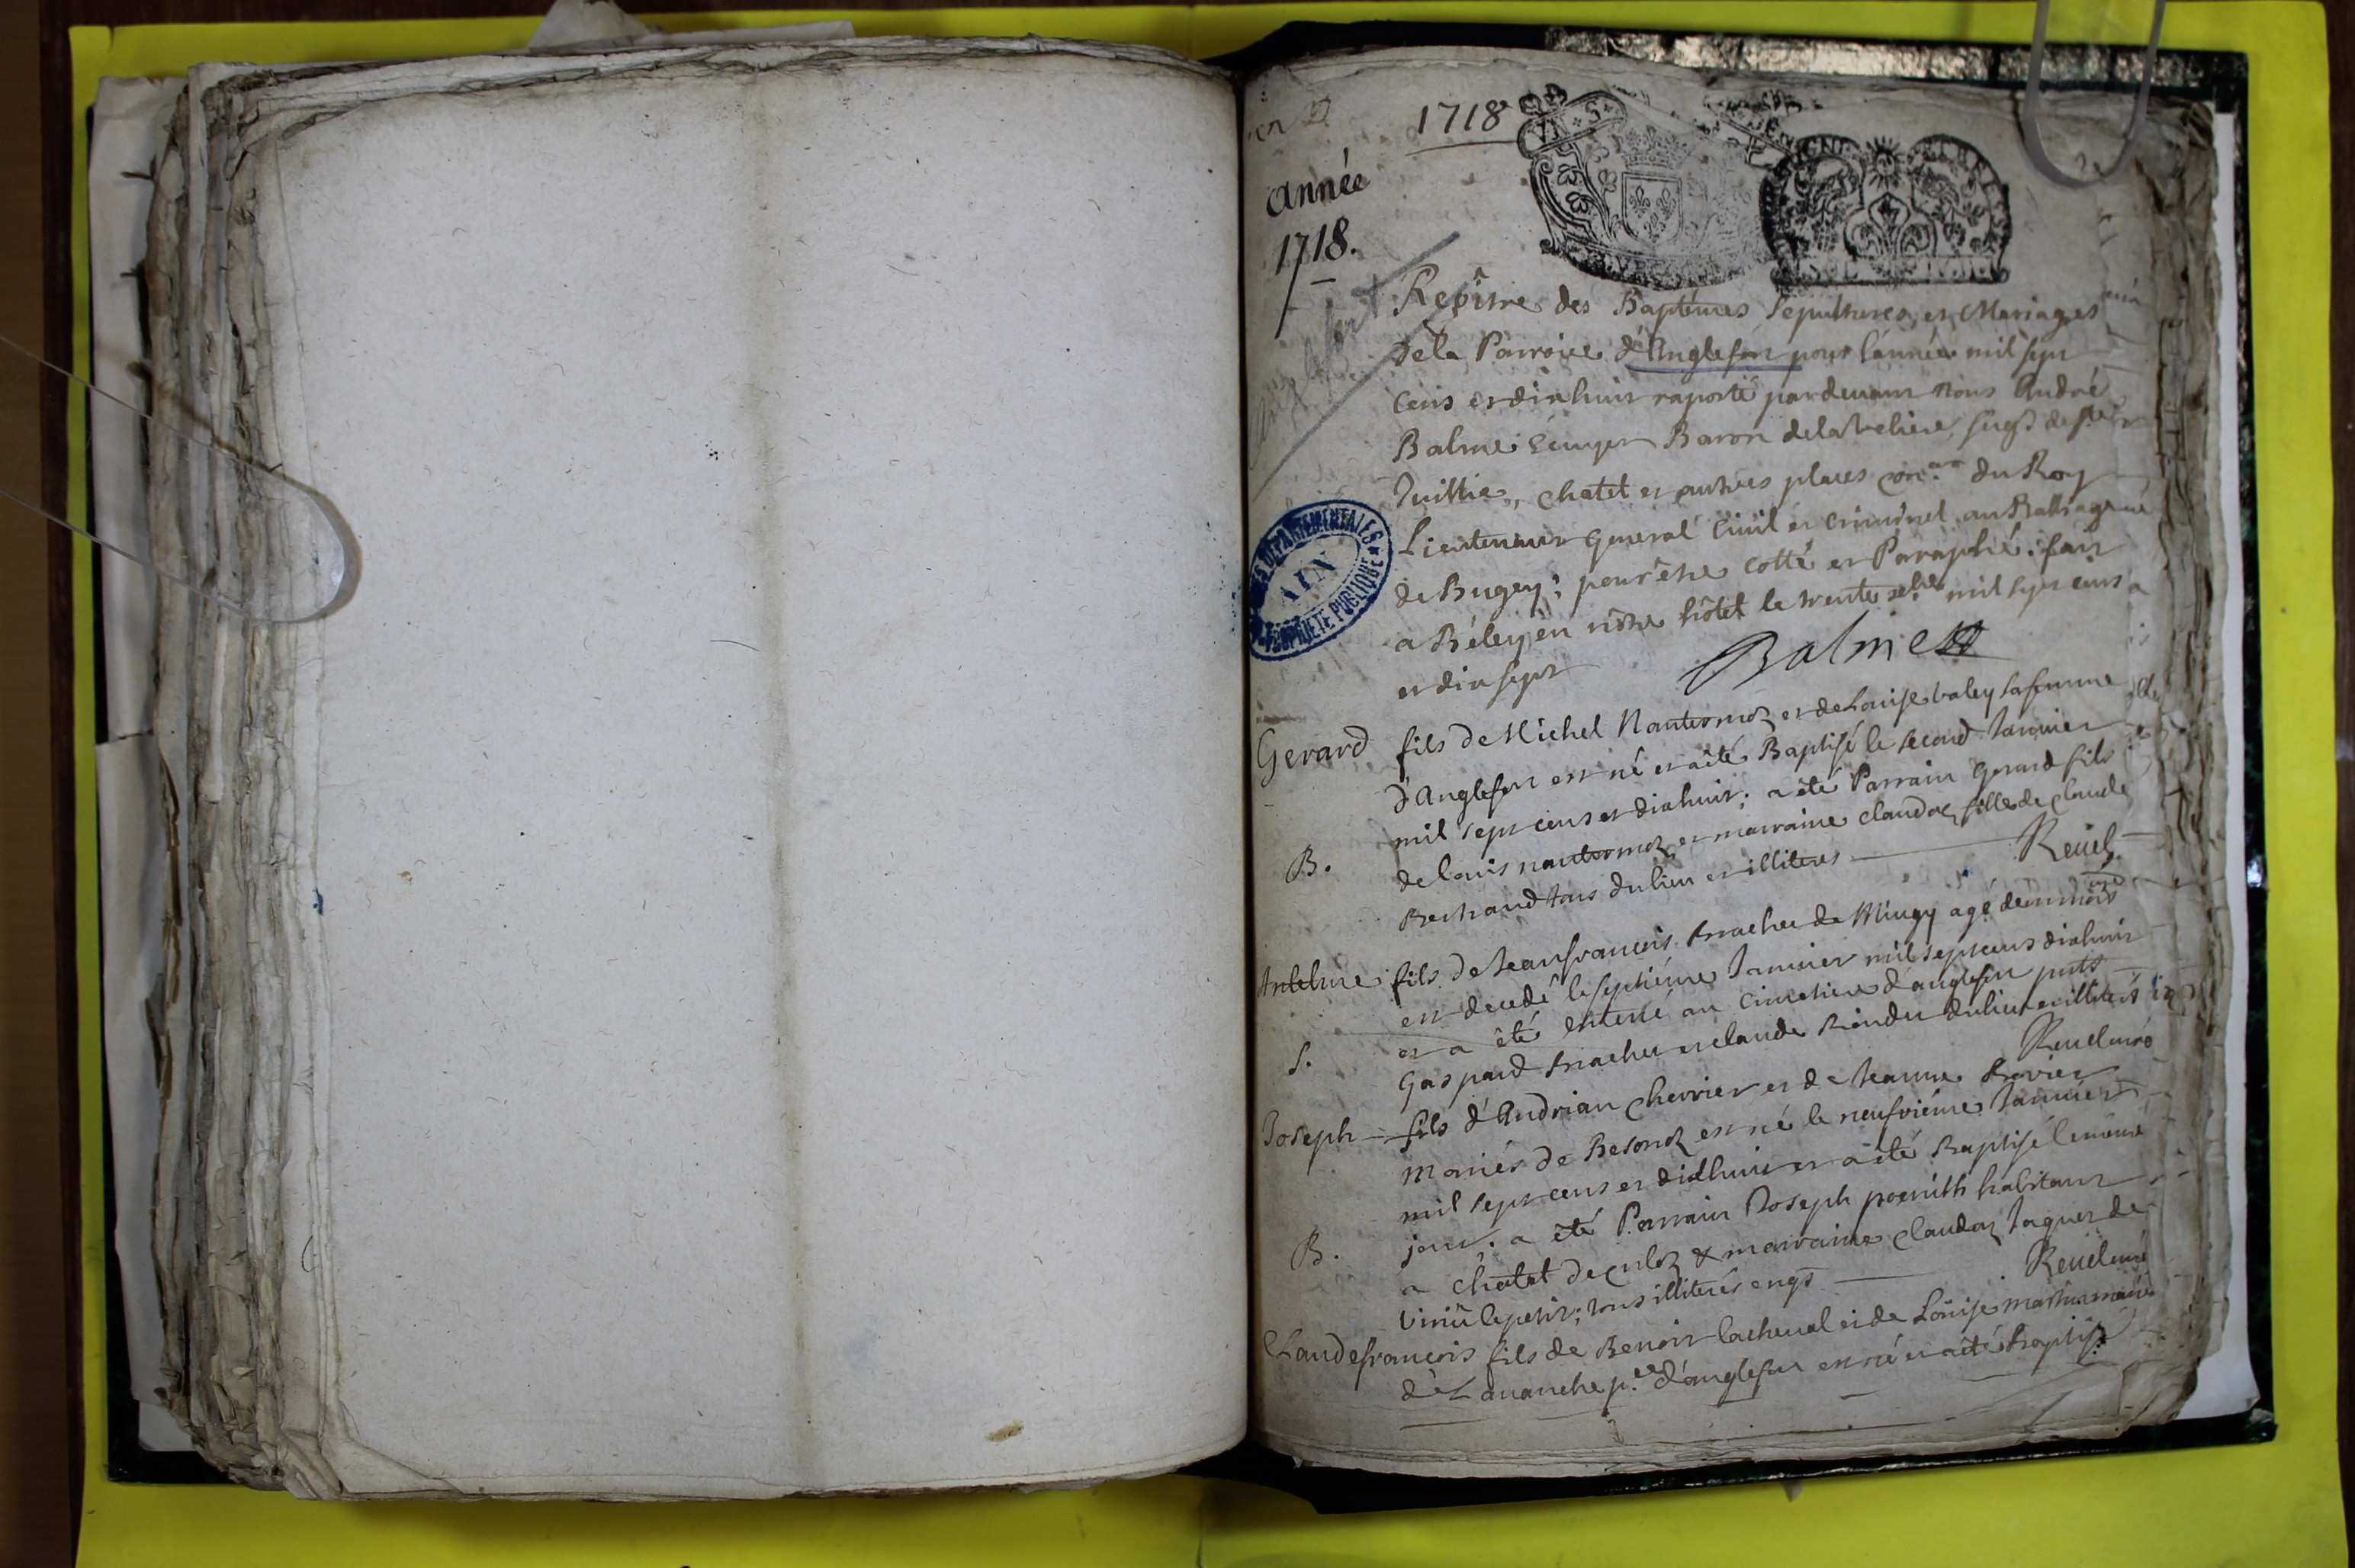 1718
année
1718.
VI S
Regître des Baptêmes Sepultures, et Mariages
dela Parroice d'Anglefort pour l'année mil sept
cens et dixhuit raporté pardevant Nous André
Balme Ecuyer Baron dela
chatel et autres places du Roy
Lieutenant General Civil et Criminel au Balliage
de Bugey; pour être cotté et Paraphé. fait
a Béley en nôtre hôtel le trente mil sept cens
et dix sept
Balme
DEPARTEMENTALES
AIN
PROPRIETE PUBLIQUE
Gerard fils de Michel Nantermoz et de Louise valey sa femme
d'Anglefort est né et a été Baptisé le second Janvier
mil sept cens et dixhuit; a été Parrain Gerard fils
de louis nantermoz et marraine claudaz fille de claude
B.
Bertrand tous du lieu et illiteres Revel
Antelme fils de Jeanfrancois Brachet de Mingy agé d'un mois
est decedé le septiéme Janvier mil sept cens dixhuit
et a été enterré au cimetiere d'anglefort
S.
Gaspard Brachet et claude du lieu et illiterés
Revel curé
Joseph fils d'Andrian Cherrier et de Jeanne
mariés de Besonz est né le neufviéme Janvier
mil sept cens et dixhuit et a été Baptisé le même
jour. a été Parrain Joseph habitant
B.
a châtel de culoz & marraine claudaz Jaquet de
le petit; tous illiterés Revel curé
Claudefrancois fils de Benoit lacheval et de Loüise mariés
de Lavanche p.sse d'anglefort est né et a été Baptisé